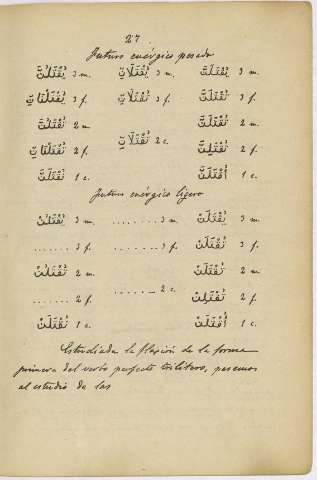 27.
Futuro enérgico pesado
يُقْتَلُنَّ 3 m. يُقْتَلَانِّ 3 m. يُقْتَلَنَّ 3 m.
يُقْتَلْنَانِّ 3 f. تُقْتَلَانِّ 3 f. تُقْتَلَنَّ 3 f.
تُقْتَلُنَّ 2 m. تُقْتَلَنَّ 2 m.
تُقْتَلَانِّ 2 c.
تُقْتَلْنَانِّ 2 f. تُقْتَلِنَّ 2 f.
نُقْتَلَنَّ 1 c. أُقْتَلَنَّ 1 c.
Futuro enérgico ligero
يُقْتَلُنْ 3 m. ........ 3 m. يُقْتَلَنْ 3 m.
....... 3 f. ........ 3 f. تُقْتَلَنْ 3 f.
تُقْتَلُنْ 2 m. تُقْتَلَنْ 2 m.
........ 2 c.
....... 2 f. تُقْتَلِنْ 2 f.
نُقْتَلَنْ 1 c. أُقْتَلَنْ 1 c.
Estudiada la flexión de la forma
primera del verbo perfecto trilítero, pasemos
al estudio de las